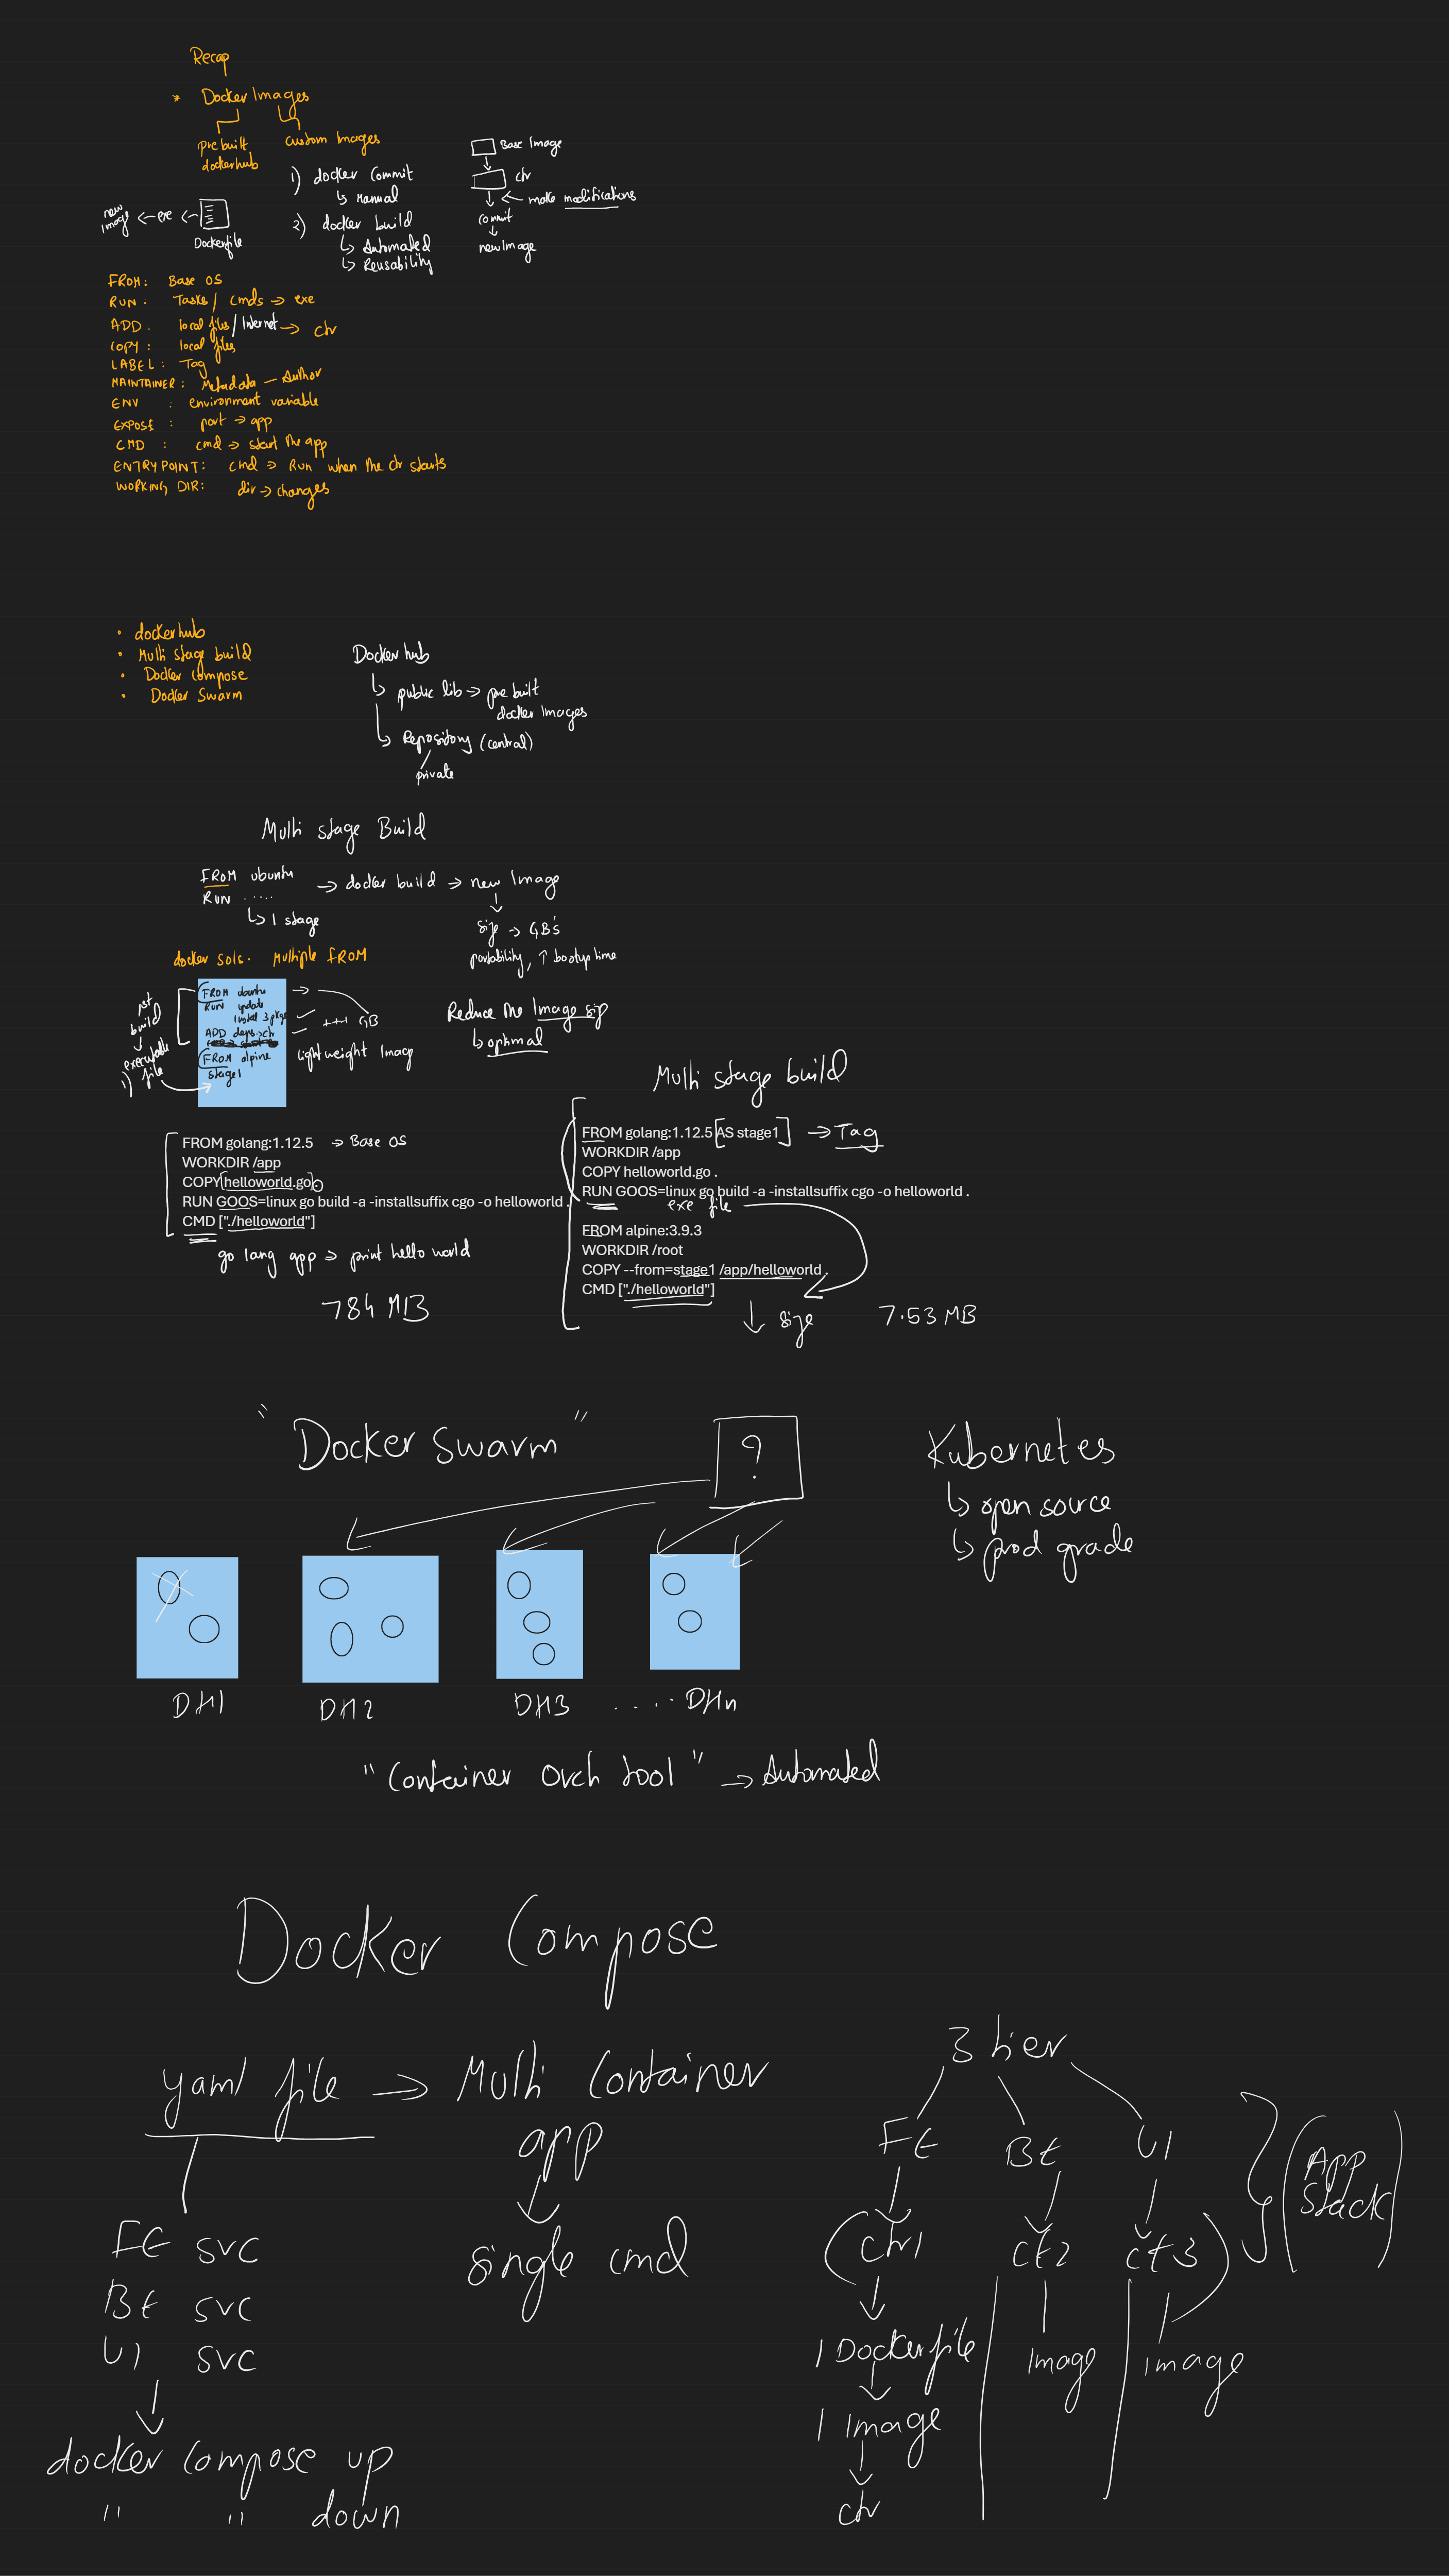 Recap
* Docker Images
pre built
dockerhub
custom Images
1) docker commit
↳ Manual
2) docker build
↳ Automated
↳ Reusability
Base Image
ctr
← make modifications
commit
newImage
new Image ← exe ←
Dockerfile
FROM: Base OS
RUN: Tasks / cmds → exe
ADD: local files / Internet → ctr
COPY: local files
LABEL: Tag
MAINTAINER: Metadata - Author
ENV : environment variable
EXPOSE: port → app
CMD : cmd → start the app
ENTRYPOINT: cmd → Run when the ctr starts
WORKING DIR: dir → changes
• dockerhub
• Multi stage build
• Docker compose
• Docker Swarm
Docker hub
↳ public lib → pre built
docker Images
↳ Repository (central)
private
Multi stage Build
FROM ubuntu
RUN .....
↳ 1 stage
→ docker build → new Image
size → GB's
portability, ↑ bootup time
docker sols: Multiple FROM
1st
build
↓
executable
1) file
FROM ubuntu
RUN update
install 3 pkgs
ADD deps → ctr
FROM alpine
stage1
+++ GB
lightweight Imag
Reduce the Image size
↳ optimal
FROM golang:1.12.5 → Base OS
WORKDIR /app
COPY helloworld.go .
RUN GOOS=linux go build -a -installsuffix cgo -o helloworld .
CMD ["./helloworld"]
go lang app → print hello world
784 MB
Multi stage build
FROM golang:1.12.5 AS stage1 → Tag
WORKDIR /app
COPY helloworld.go .
RUN GOOS=linux go build -a -installsuffix cgo -o helloworld .
exe file
FROM alpine:3.9.3
WORKDIR /root
COPY --from=stage1 /app/helloworld .
CMD ["./helloworld"]
↓ size
7.53 MB
"Docker Swarm"
?
Kubernetes
↳ open source
↳ prod grade
DH1
DH2
DH3
.....
DHn
"Container Orch tool" → Automated
Docker Compose
yaml file → Multi Container
app
single cmd
FE svc
BE svc
UI svc
docker compose up
" " down
3 tier
FE
BE
UI
ctr1
ct2
ct3
(App
Stack)
1 Dockerfile
1 Image
ctr
Image
Image